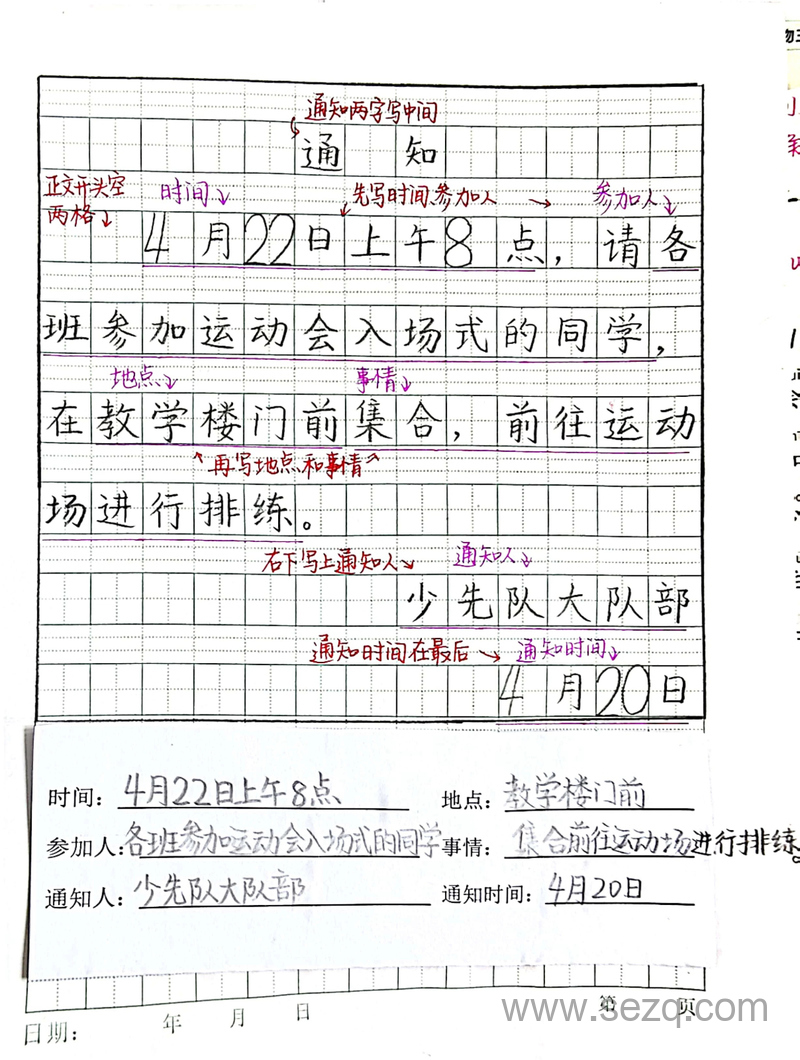 通知两字写中间
通 知
正文开头空两格↓ 时间↓ 先写时间、参加人 → 参加人↓
4月22日上午8点，请各
班参加运动会入场式的同学，
地点↓ 事情↓
在教学楼门前集合，前往运动
再写地点和事情
场进行排练。
右下写上通知人→ 通知人↓
少先队大队部
通知时间在最后→ 通知时间↓
4月20日
时间：4月22日上午8点 地点：教学楼门前
参加人：各班参加运动会入场式的同学 事情：集合前往运动场进行排练。
通知人：少先队大队部 通知时间：4月20日
日期： 年 月 日 第 页
www.sezq.com